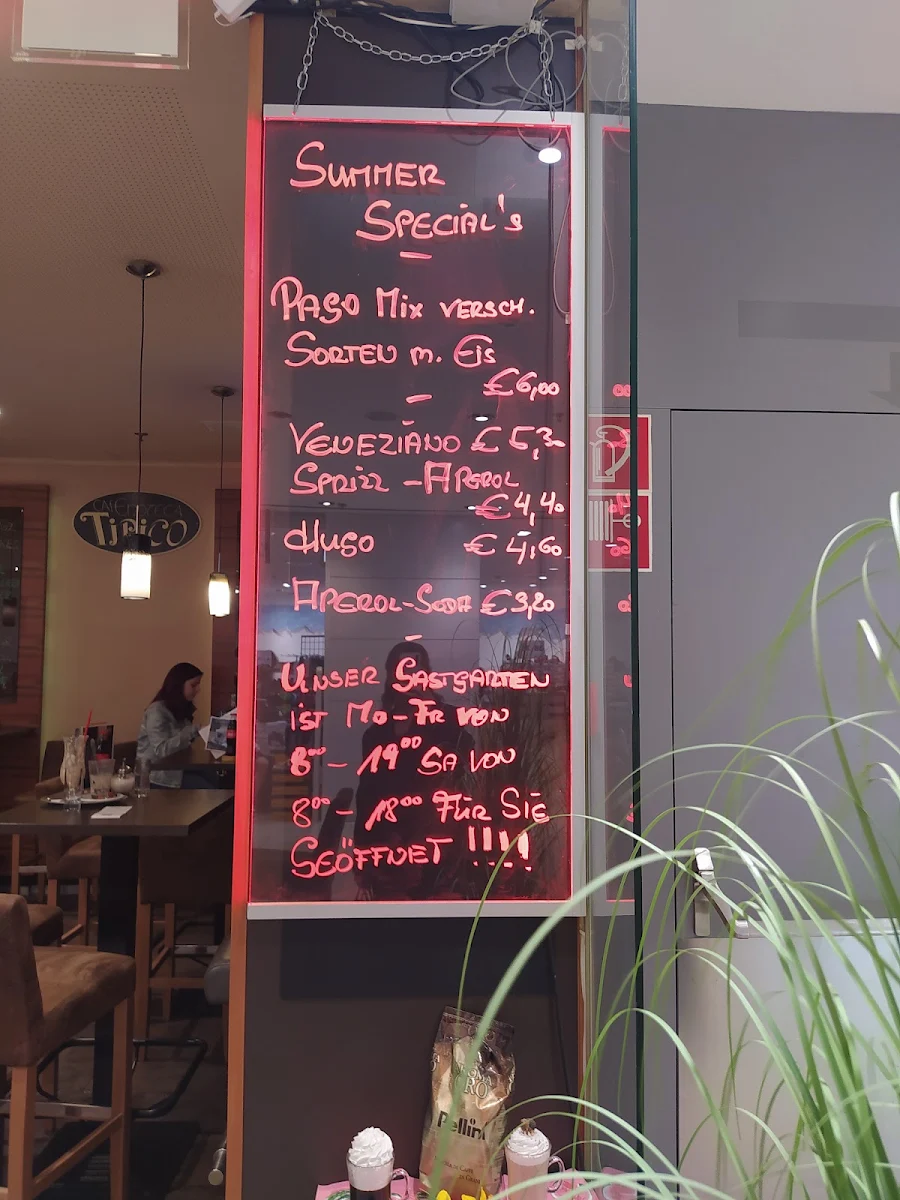 SUMMER
SPECIAL'S
PAGO MIX VERSCH.
SORTEN M. EIS
€6,00
VENEZIANO € 5,30
SPRIZZ - APEROL
€4,40
HUGO € 4,60
APEROL-SODA €3,20
UNSER GASTGARTEN
IST MO-FR VON
8⁰⁰ - 19⁰⁰ SA VON
8⁰⁰ - 18⁰⁰ FÜR SIE
GEÖFFNET !!!!
TIPICO
ORO
Pellini